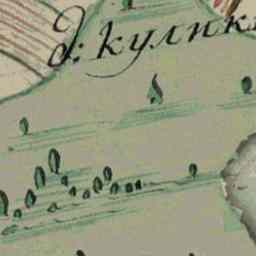 д: кулик